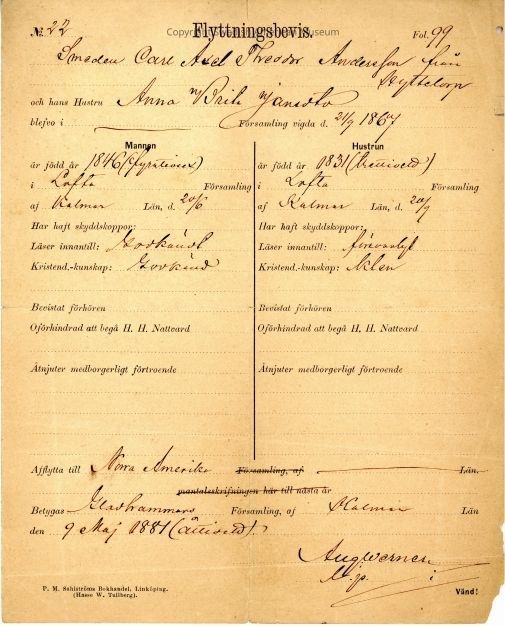 № 22 Flyttningsbevis. Fol. 99
Smeden Carl Axel Theodor Andersson från
Hyttetorp
och hans Hustru Anna Brita Jansdo
blefvo i Församling vigda d. 21/7 1867
Mannen Hustrun
är född år 1846 (fyratiosex) är född år 1831 (trettioett)
i Lofta Församling i Lofta Församling
af Kalmar Län, d. 20/6 af Kalmar Län, d. 20/7
Har haft skyddskoppor: Har haft skyddskoppor:
Läser innantill: Godkändt Läser innantill: försvarligt
Kristend.-kunskap: Godkänd Kristend.-kunskap:
Bevistat förhören Bevistat förhören
Oförhindrad att begå H. H. Nattvard Oförhindrad att begå H. H. Nattvard
Åtnjuter medborgerligt förtroende Åtnjuter medborgerligt förtroende
Afflytta till Norra Amerika Församling, af Län.
mantalsskrifningen här till nästa år
Betygas Gladhammars Församling, af Kalmar Län
den 9 Maj 1881 (åttioett).
Aug Werner
P. M. Sahlströms Bokhandel, Linköping.
(Hasse W. Tullberg).
Vänd!